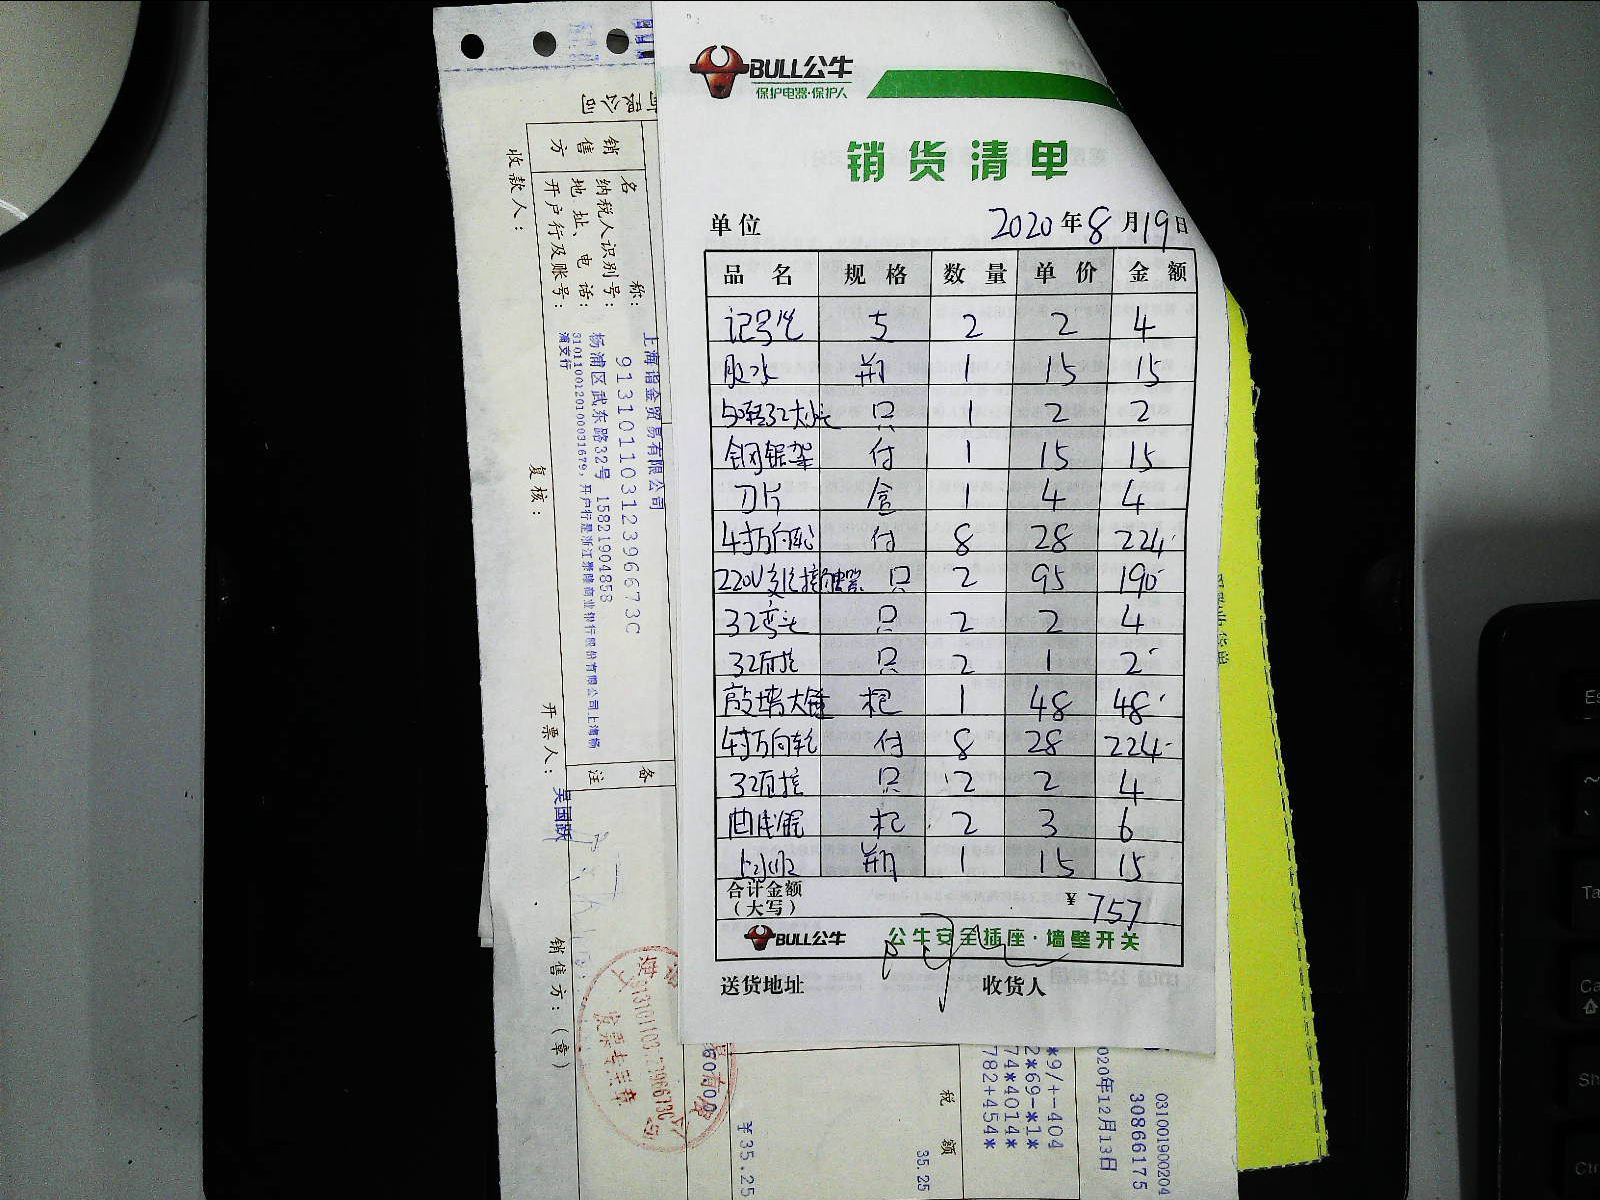 BULL公牛
保护电器·保护人
销货清单
单位 2020年8月19日
品名 规格 数量 单价 金额
记号笔 支 2 2 4
胶水 瓶 1 15 15
50转32大小头 只 1 2 2
钢锯架 付 1 15 15
刀片 盒 1 4 4
4寸万向轮 付 8 28 224
220V交流接触器 只 2 95 190
32弯头 只 2 2 4
32直接 只 2 1 2
敲墙大锤 把 1 48 48
4寸万向轮 付 8 28 224
32直接 只 2 2 4
2 3 6
瓶 1 15 15
合计金额
(大写) ¥757
BULL公牛 公牛安全插座·墙壁开关
送货地址 收货人
销售方
名 称: 上海谐金贸易有限公司
纳税人识别号: 91310110312396673C
地址、电话: 杨浦区武东路32号 15821904858
开户行及账号: 31011001201000031679, 开户行是浙江泰隆商业银行股份有限公司上海杨浦支行
备注
收款人:
复核:
开票人: 吴国跃
销售方:(章)
91310110312396673C
发票专用章
¥35.25
税额
35.25
*9/+-404
2*69-*1*
74*4014*
782+454*
031001900204
30866175
020年12月13日